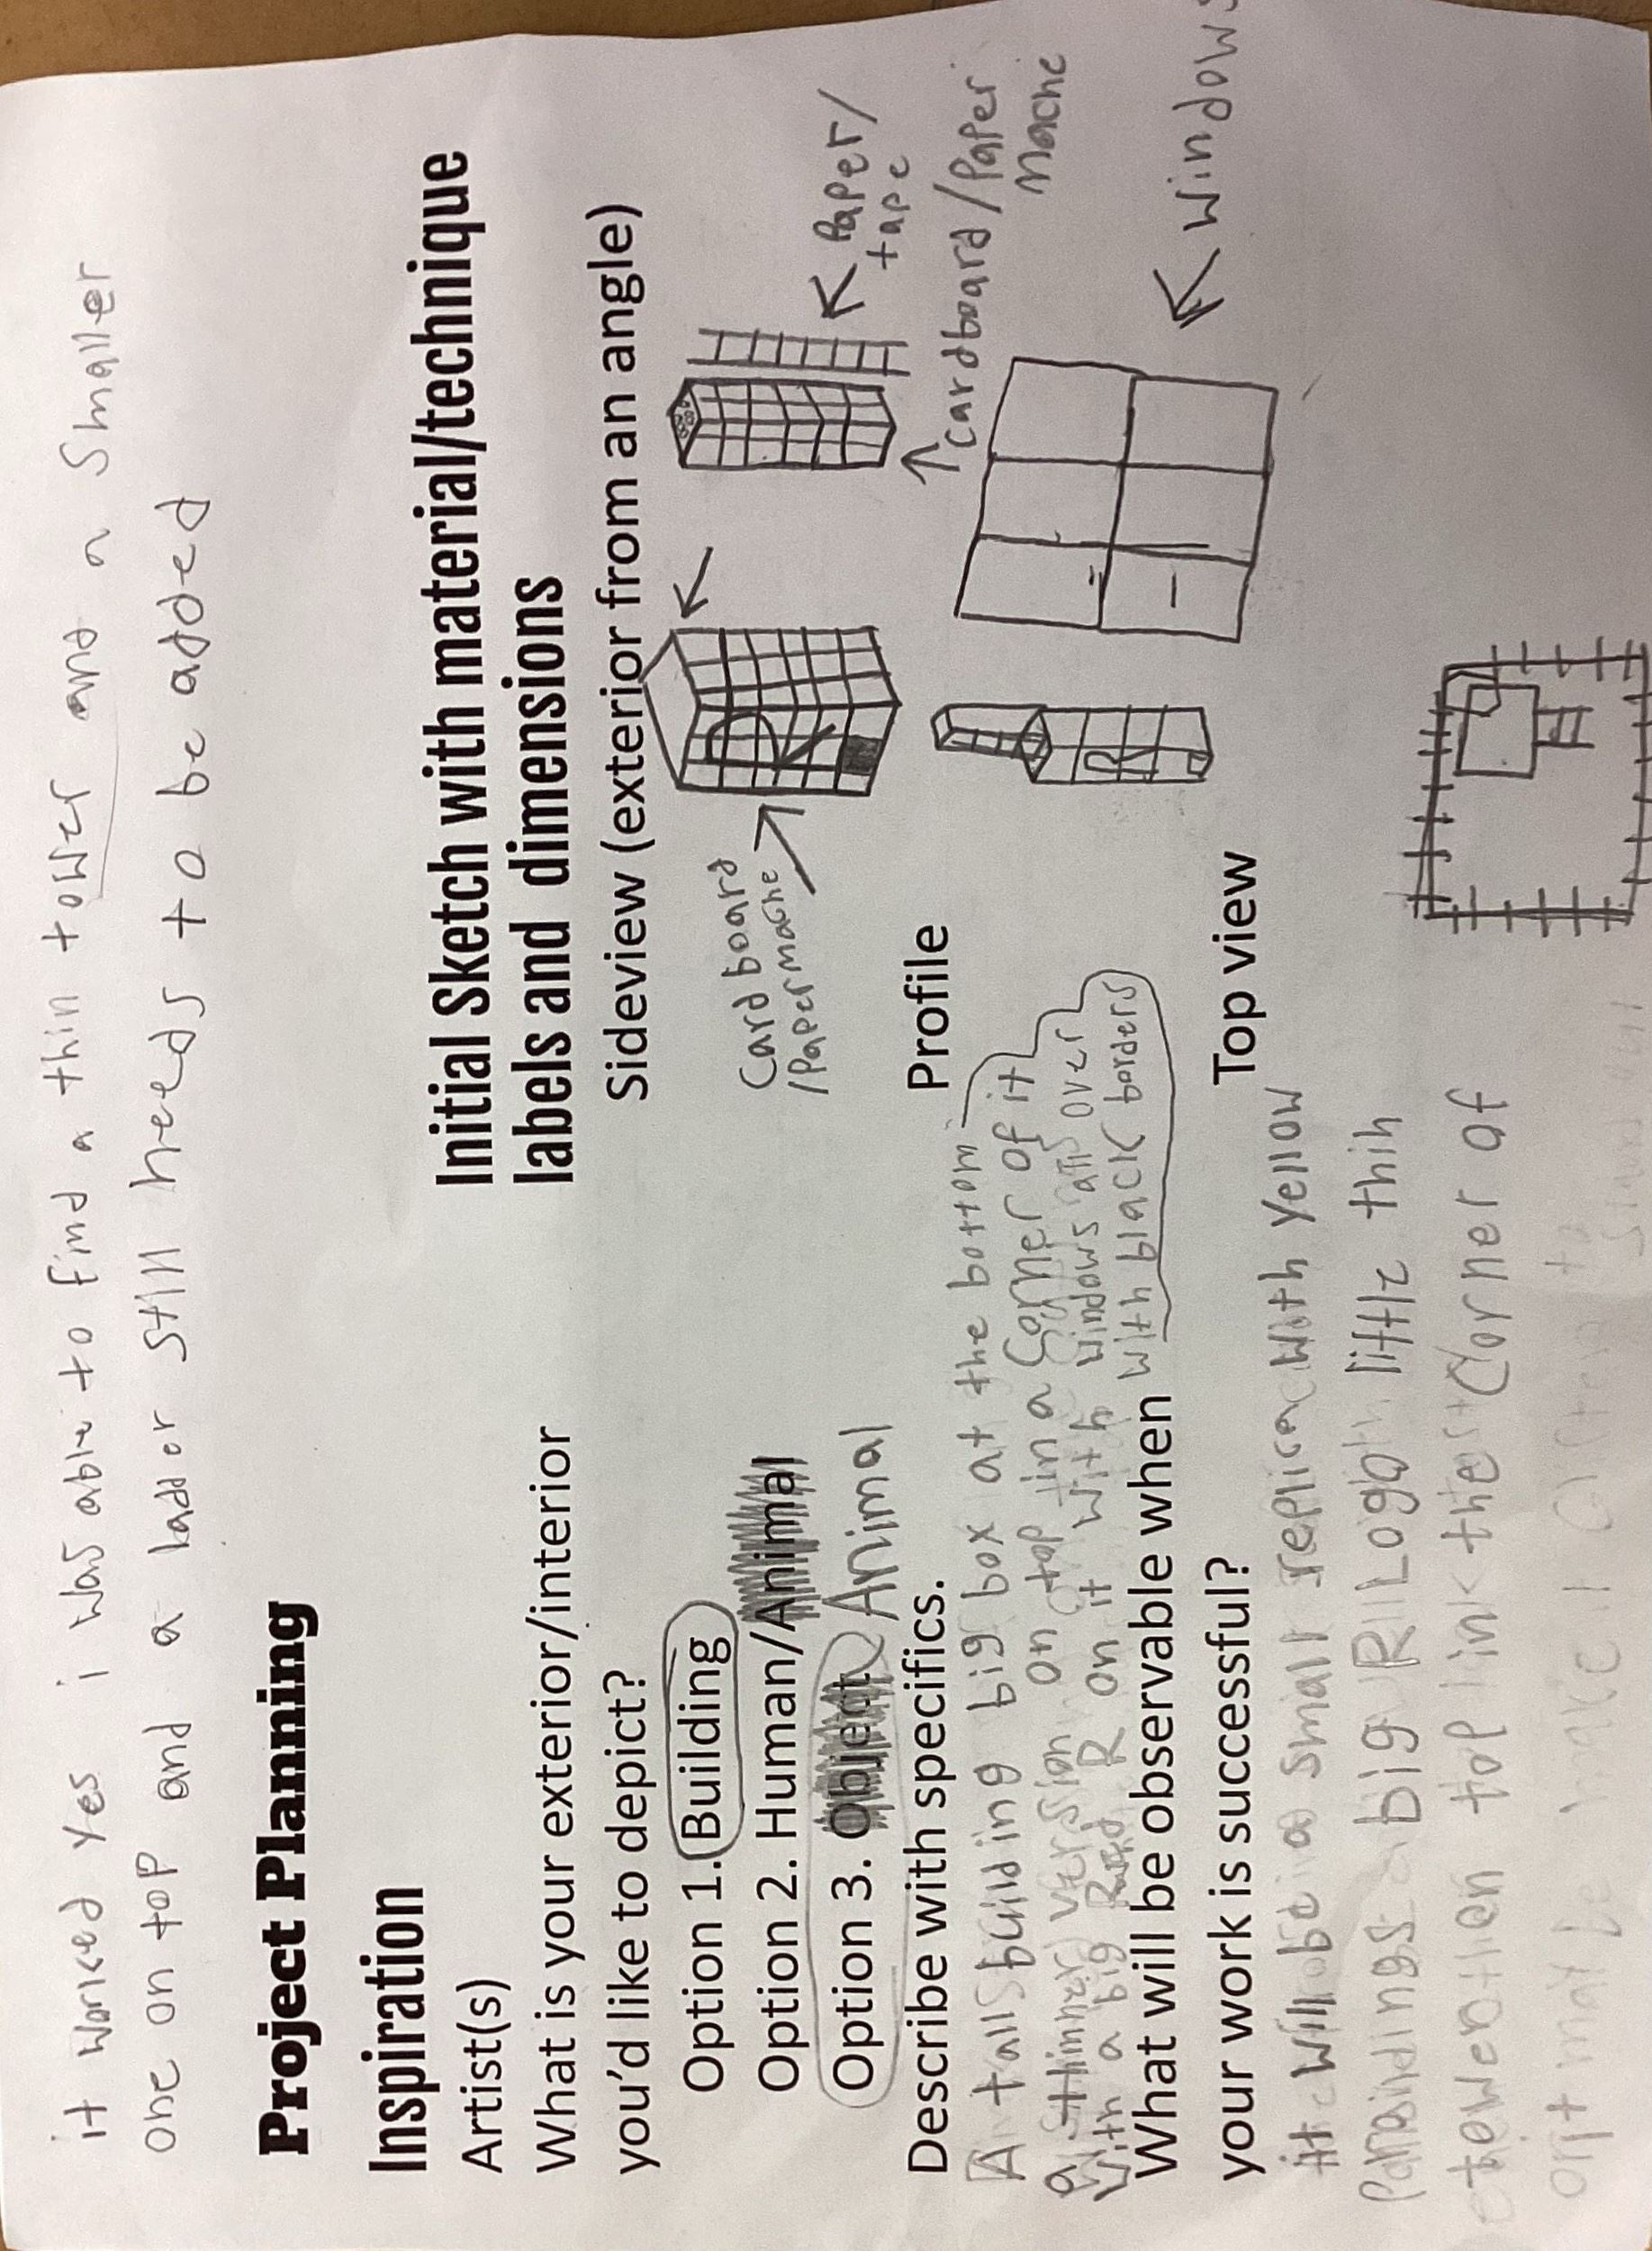 it worked yes i was able to find a thin tower and a smaller
one on top and a lador still needs to be added
Project Planning
Inspiration
Artist(s)
What is your exterior/interior
you'd like to depict?
Option 1. Building
Option 2. Human/Animal
Option 3. Object Animal
Describe with specifics.
A tall building big box at the bottom
a thinner version on top in a corner of it
with a big R on it with windows all over
with black borders
What will be observable when
your work is successful?
it will be a small replica with yellow
big R Logo little thin
tower on top in the corner of
it
Initial Sketch with material/technique
labels and dimensions
Sideview (exterior from an angle)
Card board
/Paper mache
Paper/
tape
cardboard/Paper
mache
Profile
windows
Top view